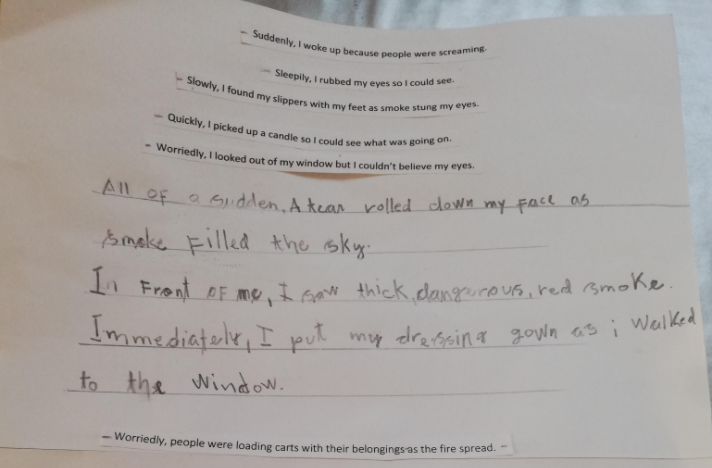 – Suddenly, I woke up because people were screaming.
– Sleepily, I rubbed my eyes so I could see.
– Slowly, I found my slippers with my feet as smoke stung my eyes.
– Quickly, I picked up a candle so I could see what was going on.
– Worriedly, I looked out of my window but I couldn't believe my eyes.
All of a sudden, A tear rolled down my face as
smoke filled the sky.
In Front of me, I saw thick, dangerous, red smoke.
Immediately, I put my dressing gown as i walked
to the window.
– Worriedly, people were loading carts with their belongings as the fire spread. –